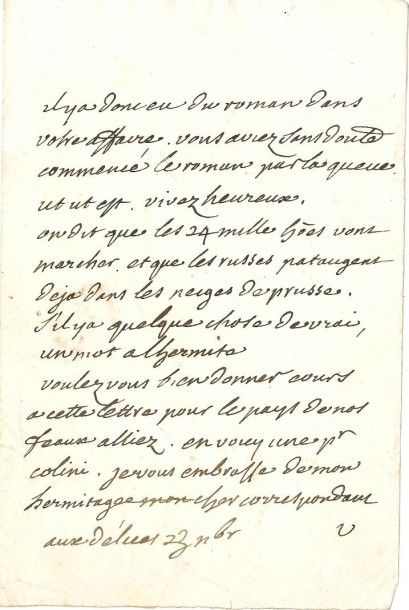 il y a donc eu du roman dans
votre affaire. vous aviez sans doute
commencé le roman par la queue.
ut ut est. vivez heureux.
on dit que les 24 mille hões vont
marcher. et que les russes pataugent
deja dans les neiges de prusse.
s'il y a quelque chose de vrai,
un mot a lhermite
voulez vous bien donner cours
a cette lettre pour le pays de nos
feaux alliez. en voicy une pr
colini. je vous embrasse de mon
hermitage mon cher correspondant
aux délices 23 nbr
V